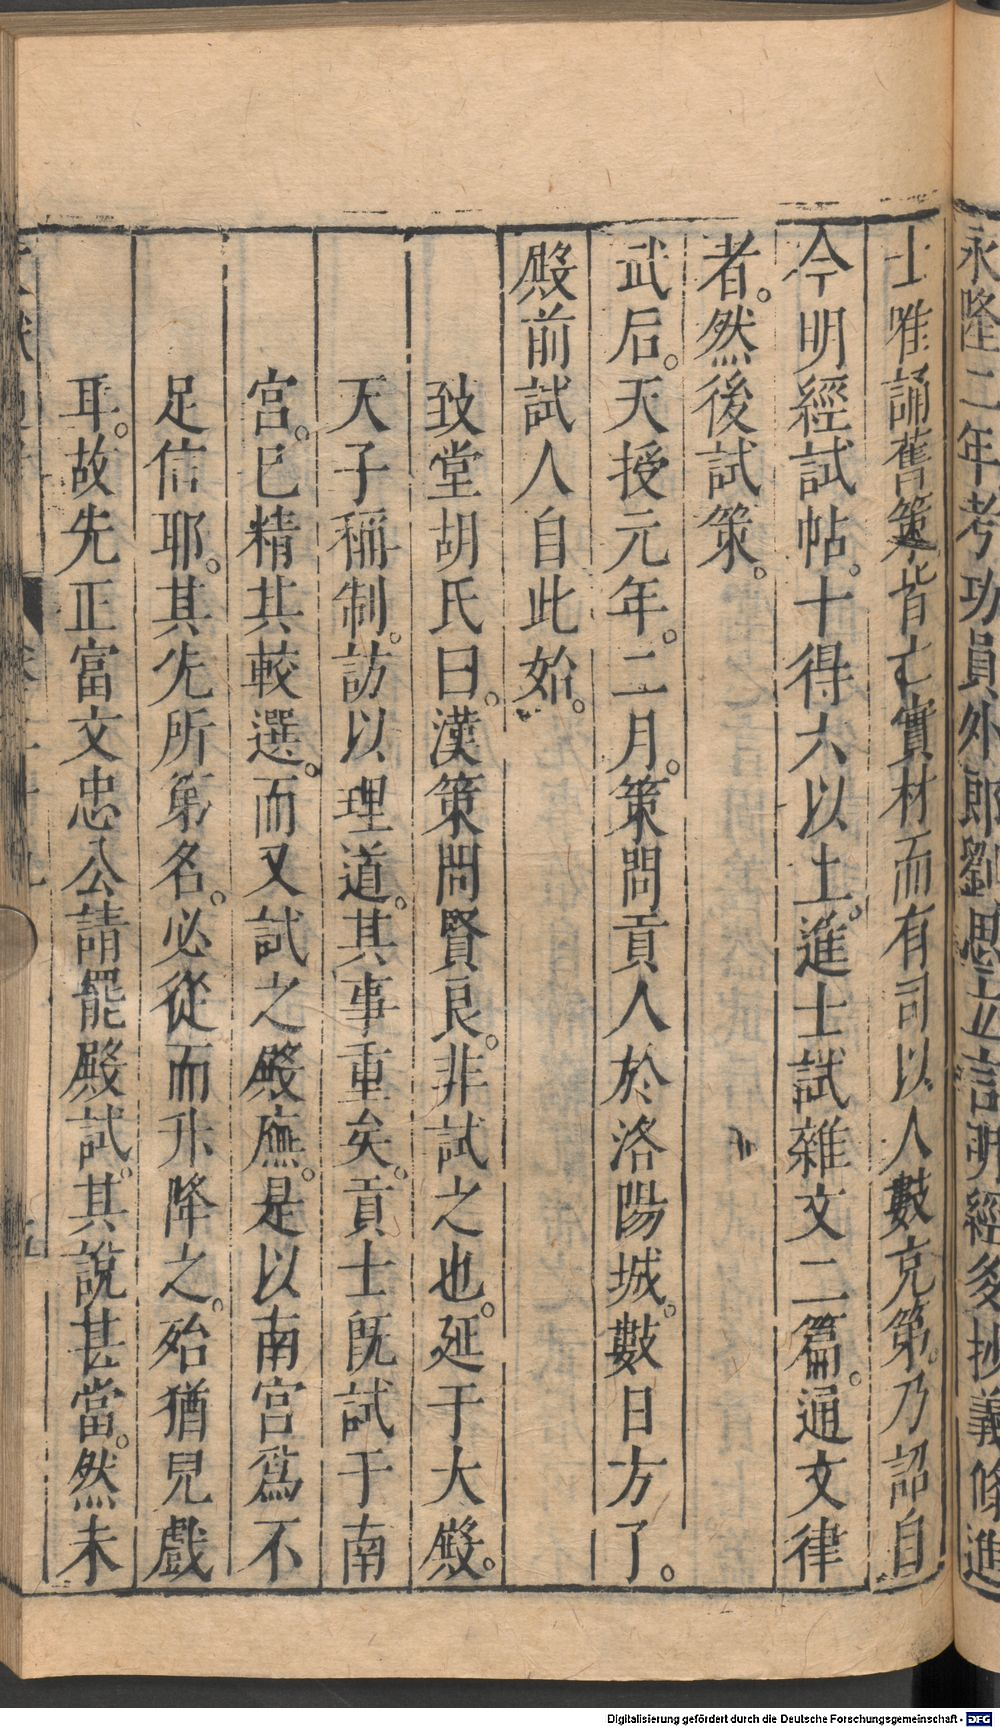 永隆二年考功員外郎劉思立言明經多抄義條進
士唯誦舊策皆亡實材而有司以人數充第。乃詔自
今明經試帖。十得六以上。進士試雜文二篇。通文律
者。然後試策。
武后。天授元年。二月。策問貢人於洛陽城。數日方了。
殿前試人自此始。
致堂胡氏曰。漢策問賢良。非試之也。延于大殿。
天子稱制。訪以理道。其事重矣。貢士旣試于南
宮。已精其較選。而又試之殿廡。是以南宮爲不
足信耶。其先所第名。必從而升降之。殆猶兒戲
耳。故先正富文忠公請罷殿試。其說甚當。然未
Digitalisierung gefördert durch die Deutsche Forschungsgemeinschaft - DFG